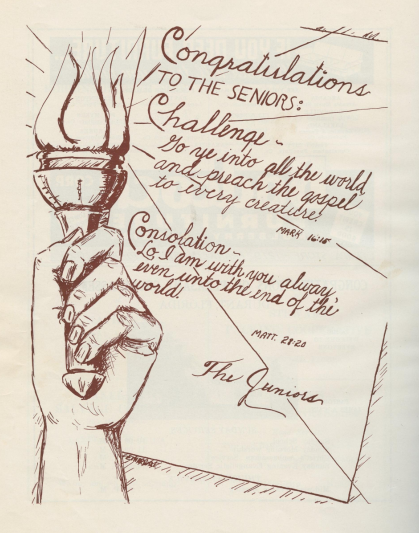 Congratulations
TO THE SENIORS:
Challenge -
Go ye into all the world
and preach the gospel
to every creature.
MARK 16:15
Consolation -
Lo I am with you alway
even unto the end of the
world.
MATT. 28:20
The Juniors